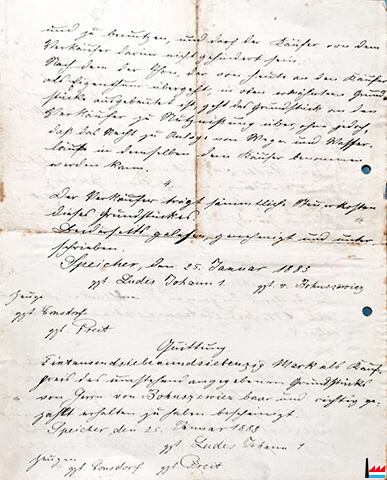 und zu benutzen, und darf der Käufer von dem
Verkäufer darin nicht gehindert sein.
Nach dem der Thon, der von heute an den Käufer
als Eigenthum übergeht, in oben erwähntem Grund
stücke ausgebeutet ist, geht das Grundstück an den
Verkäufer zu Nutznießung über, ohne jedoch,
daß das Recht zu Anlage von Wegen und Wasser
läufe in demselben dem Käufer benommen
werden kann.
4.
Der Verkäufer trägt sämmtliche Steuerkosten
dieses Grundstückes.
Beiderseits gelesen, genehmigt und unter
schrieben.
Speicher, den 25. Januar 1883
ggt. Ludes Johann 1. ggt. v. Bohuszewicz
Zeuge
ggt. Consdorf
ggt. Breit
Quittung
Eintausendsiebenundsiebenzig Mark als Kauf
preis des umstehend angegebenen Grundstücks
von Herrn von Bohuszewicz baar und richtig ge
zahlt erhalten zu haben bescheinigt
Speicher, den 25. Januar 1883
ggt. Ludes Johann 1
Zeugen
ggt. Consdorf ggt. Breit